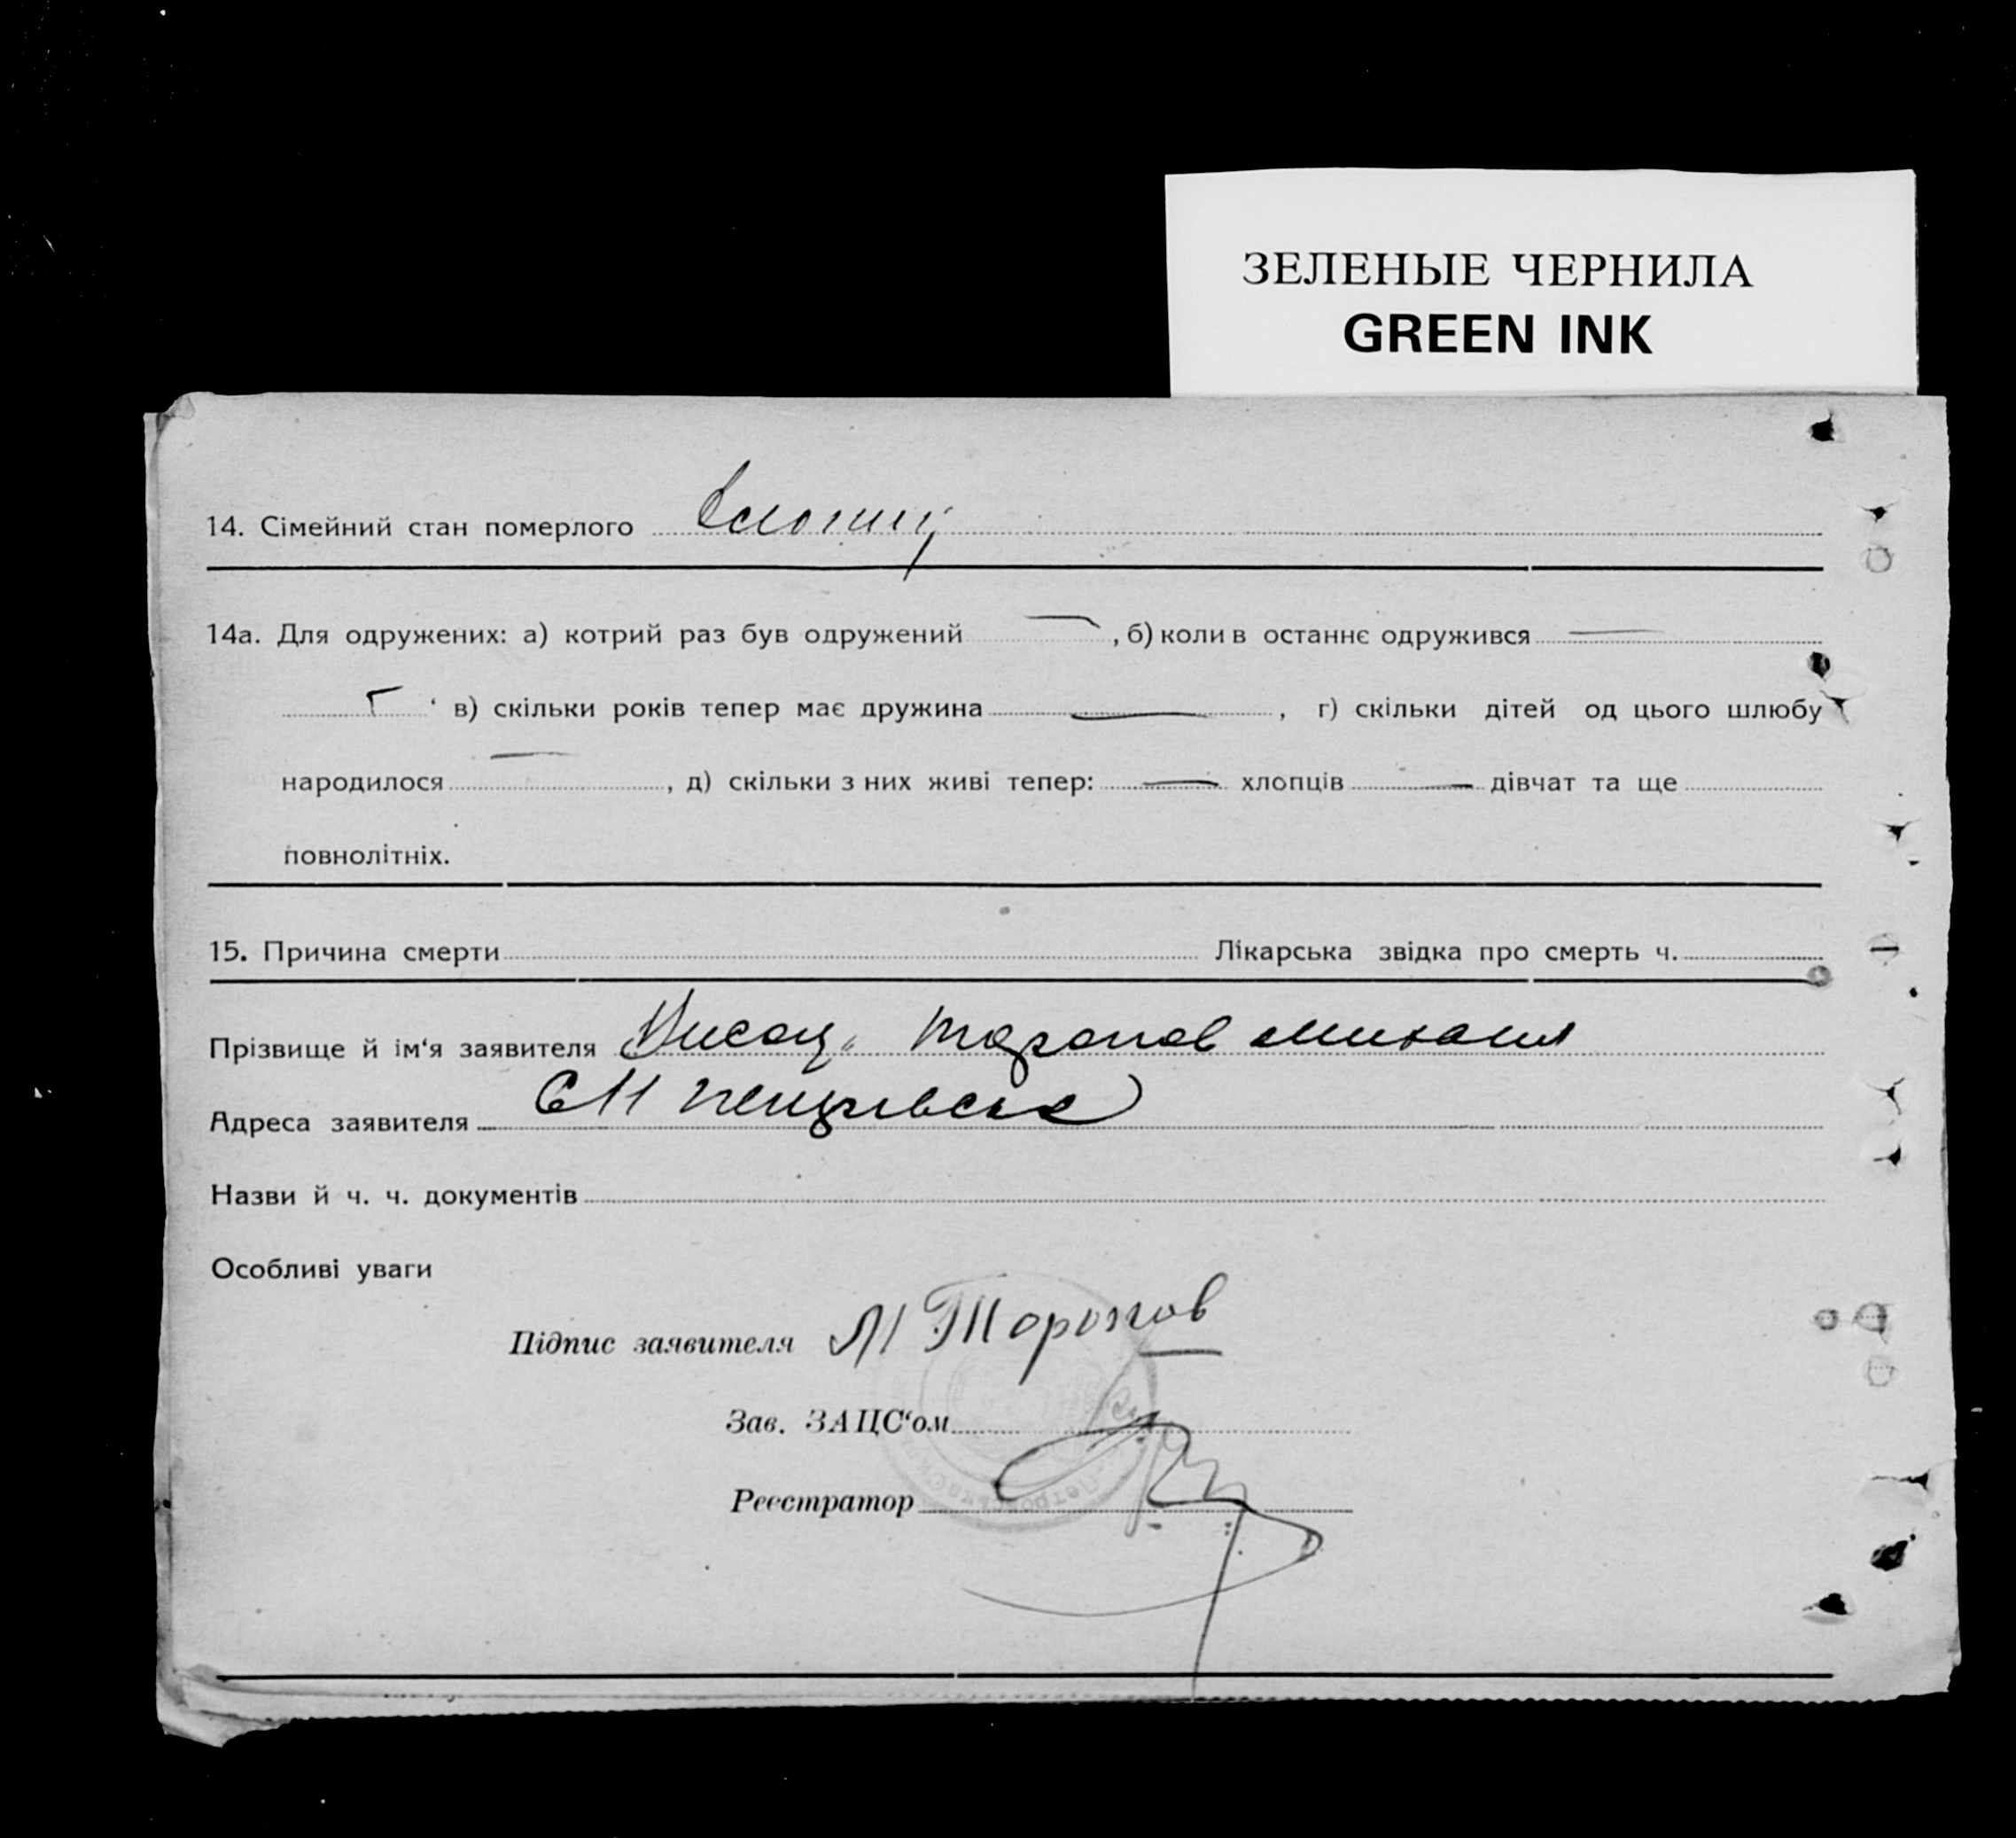 ЗЕЛЕНЫЕ ЧЕРНИЛА
GREEN INK
14. Сімейний стан померлого
14а. Для одружених: а) котрий раз був одружений — , б) коли в останнє одружився —
в) скільки років тепер має дружина — , г) скільки дітей од цього шлюбу
народилося — , д) скільки з них живі тепер: — хлопців — дівчат та ще
повнолітніх.
15. Причина смерти Лікарська звідка про смерть ч.
Прізвище й ім‘я заявителя Михаил
Адреса заявителя
Назви й ч. ч. документів
Особливі уваги
Підпис заявителя
Зав. ЗАЦС‘ом
Реєстратор